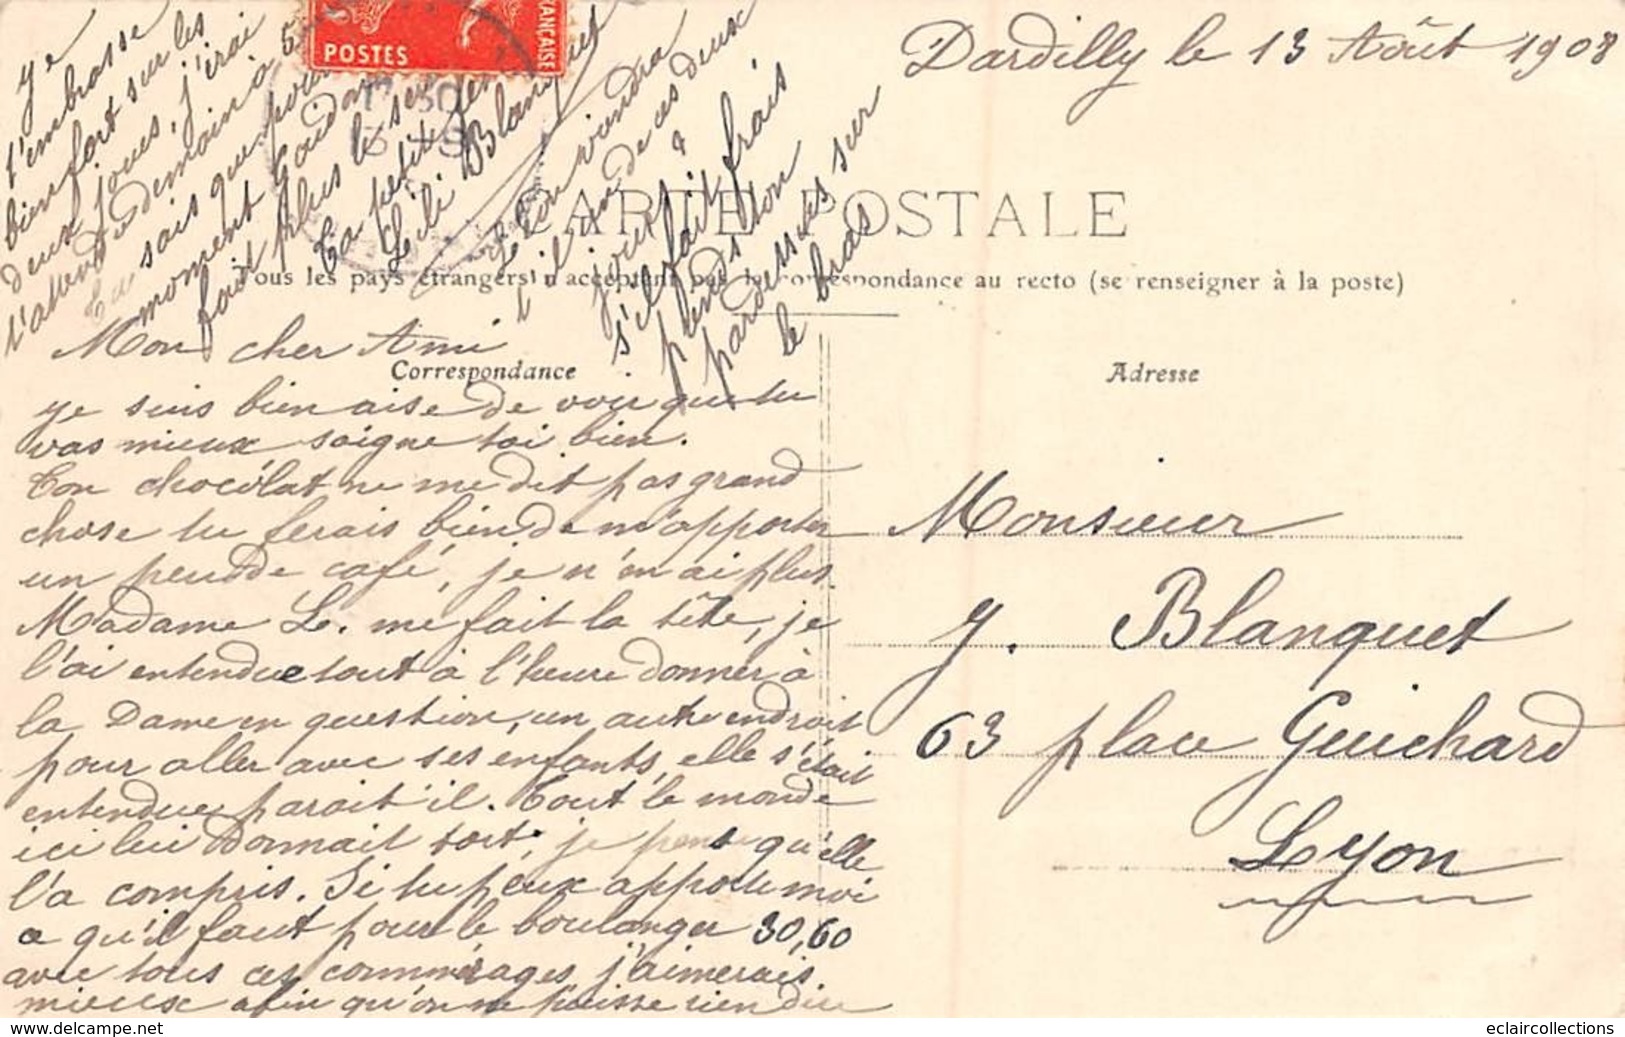 Dardilly le 13 Août 1908
POSTES
FRANÇAISE
CARTE POSTALE
Tous les pays étrangers n'acceptent pas la correspondance au recto (se renseigner à la poste)
Correspondance
Adresse
Mon cher Ami
je suis bien aise de voir que tu
vas mieux soigne toi bien.
Ton chocolat ne me dit pas grand
chose tu ferais bien de m'apporter
un peu de café, je n'en ai plus.
Madame L. me fait la tête, je
l'ai entendue tout à l'heure donner à
la Dame en question, un autre endroit
pour aller avec ses enfants, elle s'était
entendue parait'il. Tout le monde
ici lui donnait tort, je pense qu'elle
l'a compris. Si tu peux apporte moi
a qu'il faut pour le boulanger 30,60
avec tous ces commérages j'aimerais
mieux afin qu'on ne puisse rien dire
je
t'embrasse
bien fort sur les
deux joues, j'irai
t'attendre demain à 5
Tu sais que pour
moment Gaudam
fait plus le ser
Ta petite fem
Lili Blanquet
Léon viendra
l'il un de ces deux
jours &
s'il fait frais
prends ton
pardessus sur
le bras
Monsieur
J. Blanquet
63 place Guichard
Lyon
www.delcampe.net
eclaircollections